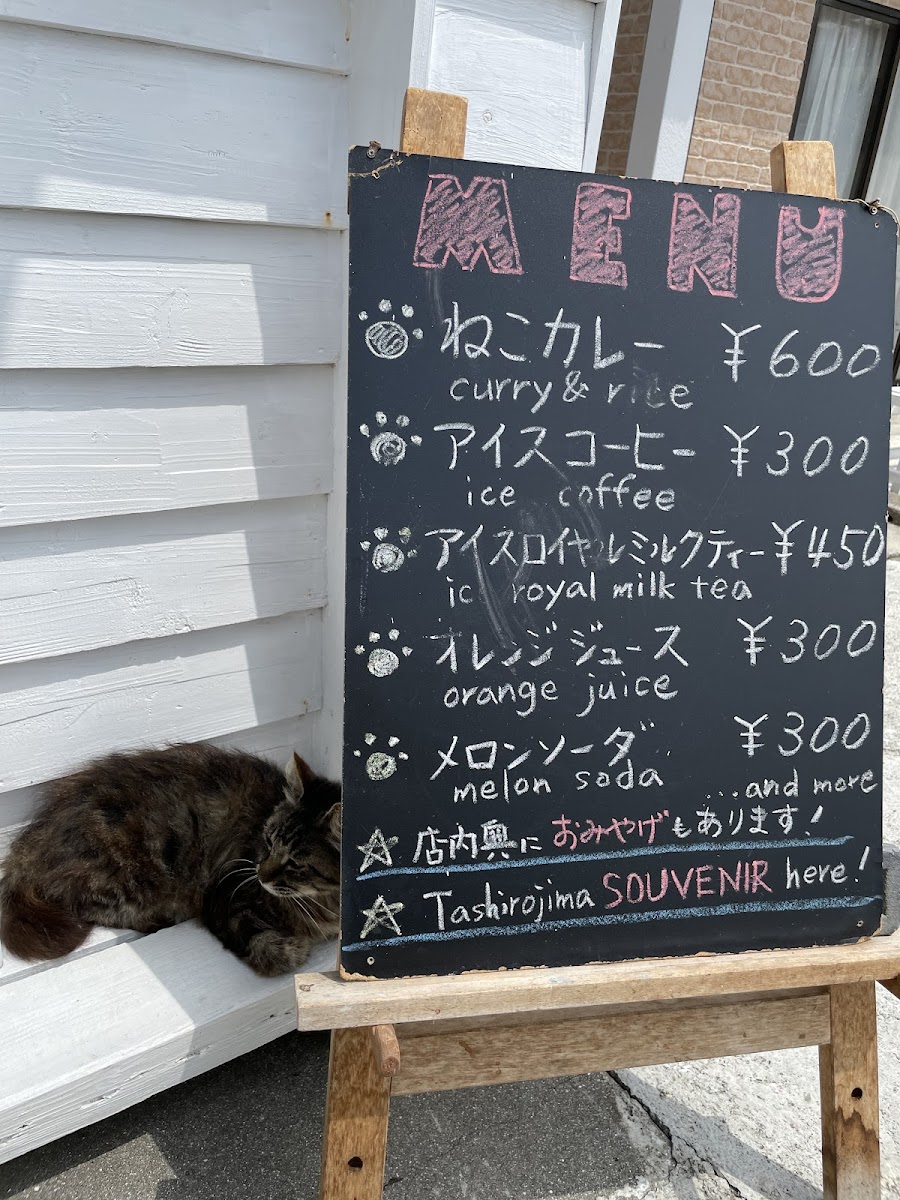 MENU
ねこカレー ¥600
curry & rice
アイスコーヒー ¥300
ice coffee
アイスロイヤルミルクティー ¥450
ic royal milk tea
オレンジジュース ¥300
orange juice
メロンソーダ ¥300
melon soda ...and more
☆ 店内奥におみやげもあります!
☆ Tashirojima SOUVENIR here!